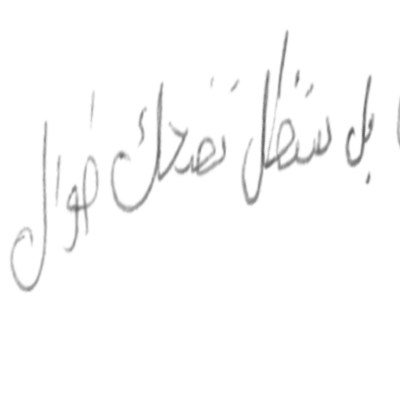 بل ستظل تضحك طوال